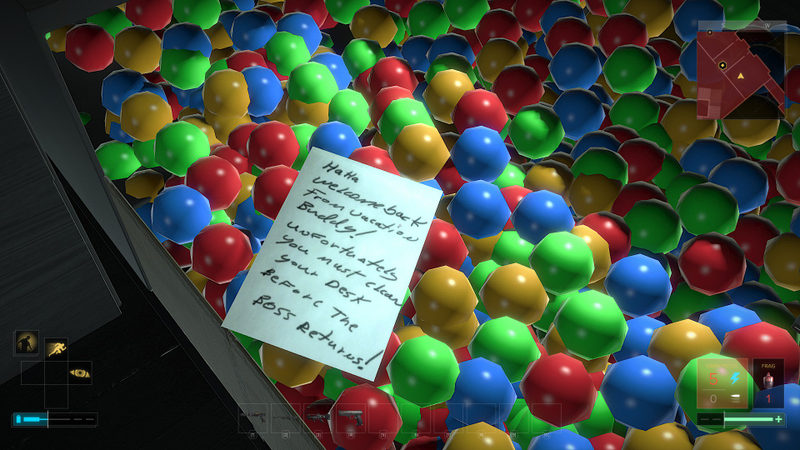 HaHa
welcome back
From vacation
Buddy!
Unfortunately
you must clean
your Desk
Before The
Boss Returns!
W
5
0
FRAG
1